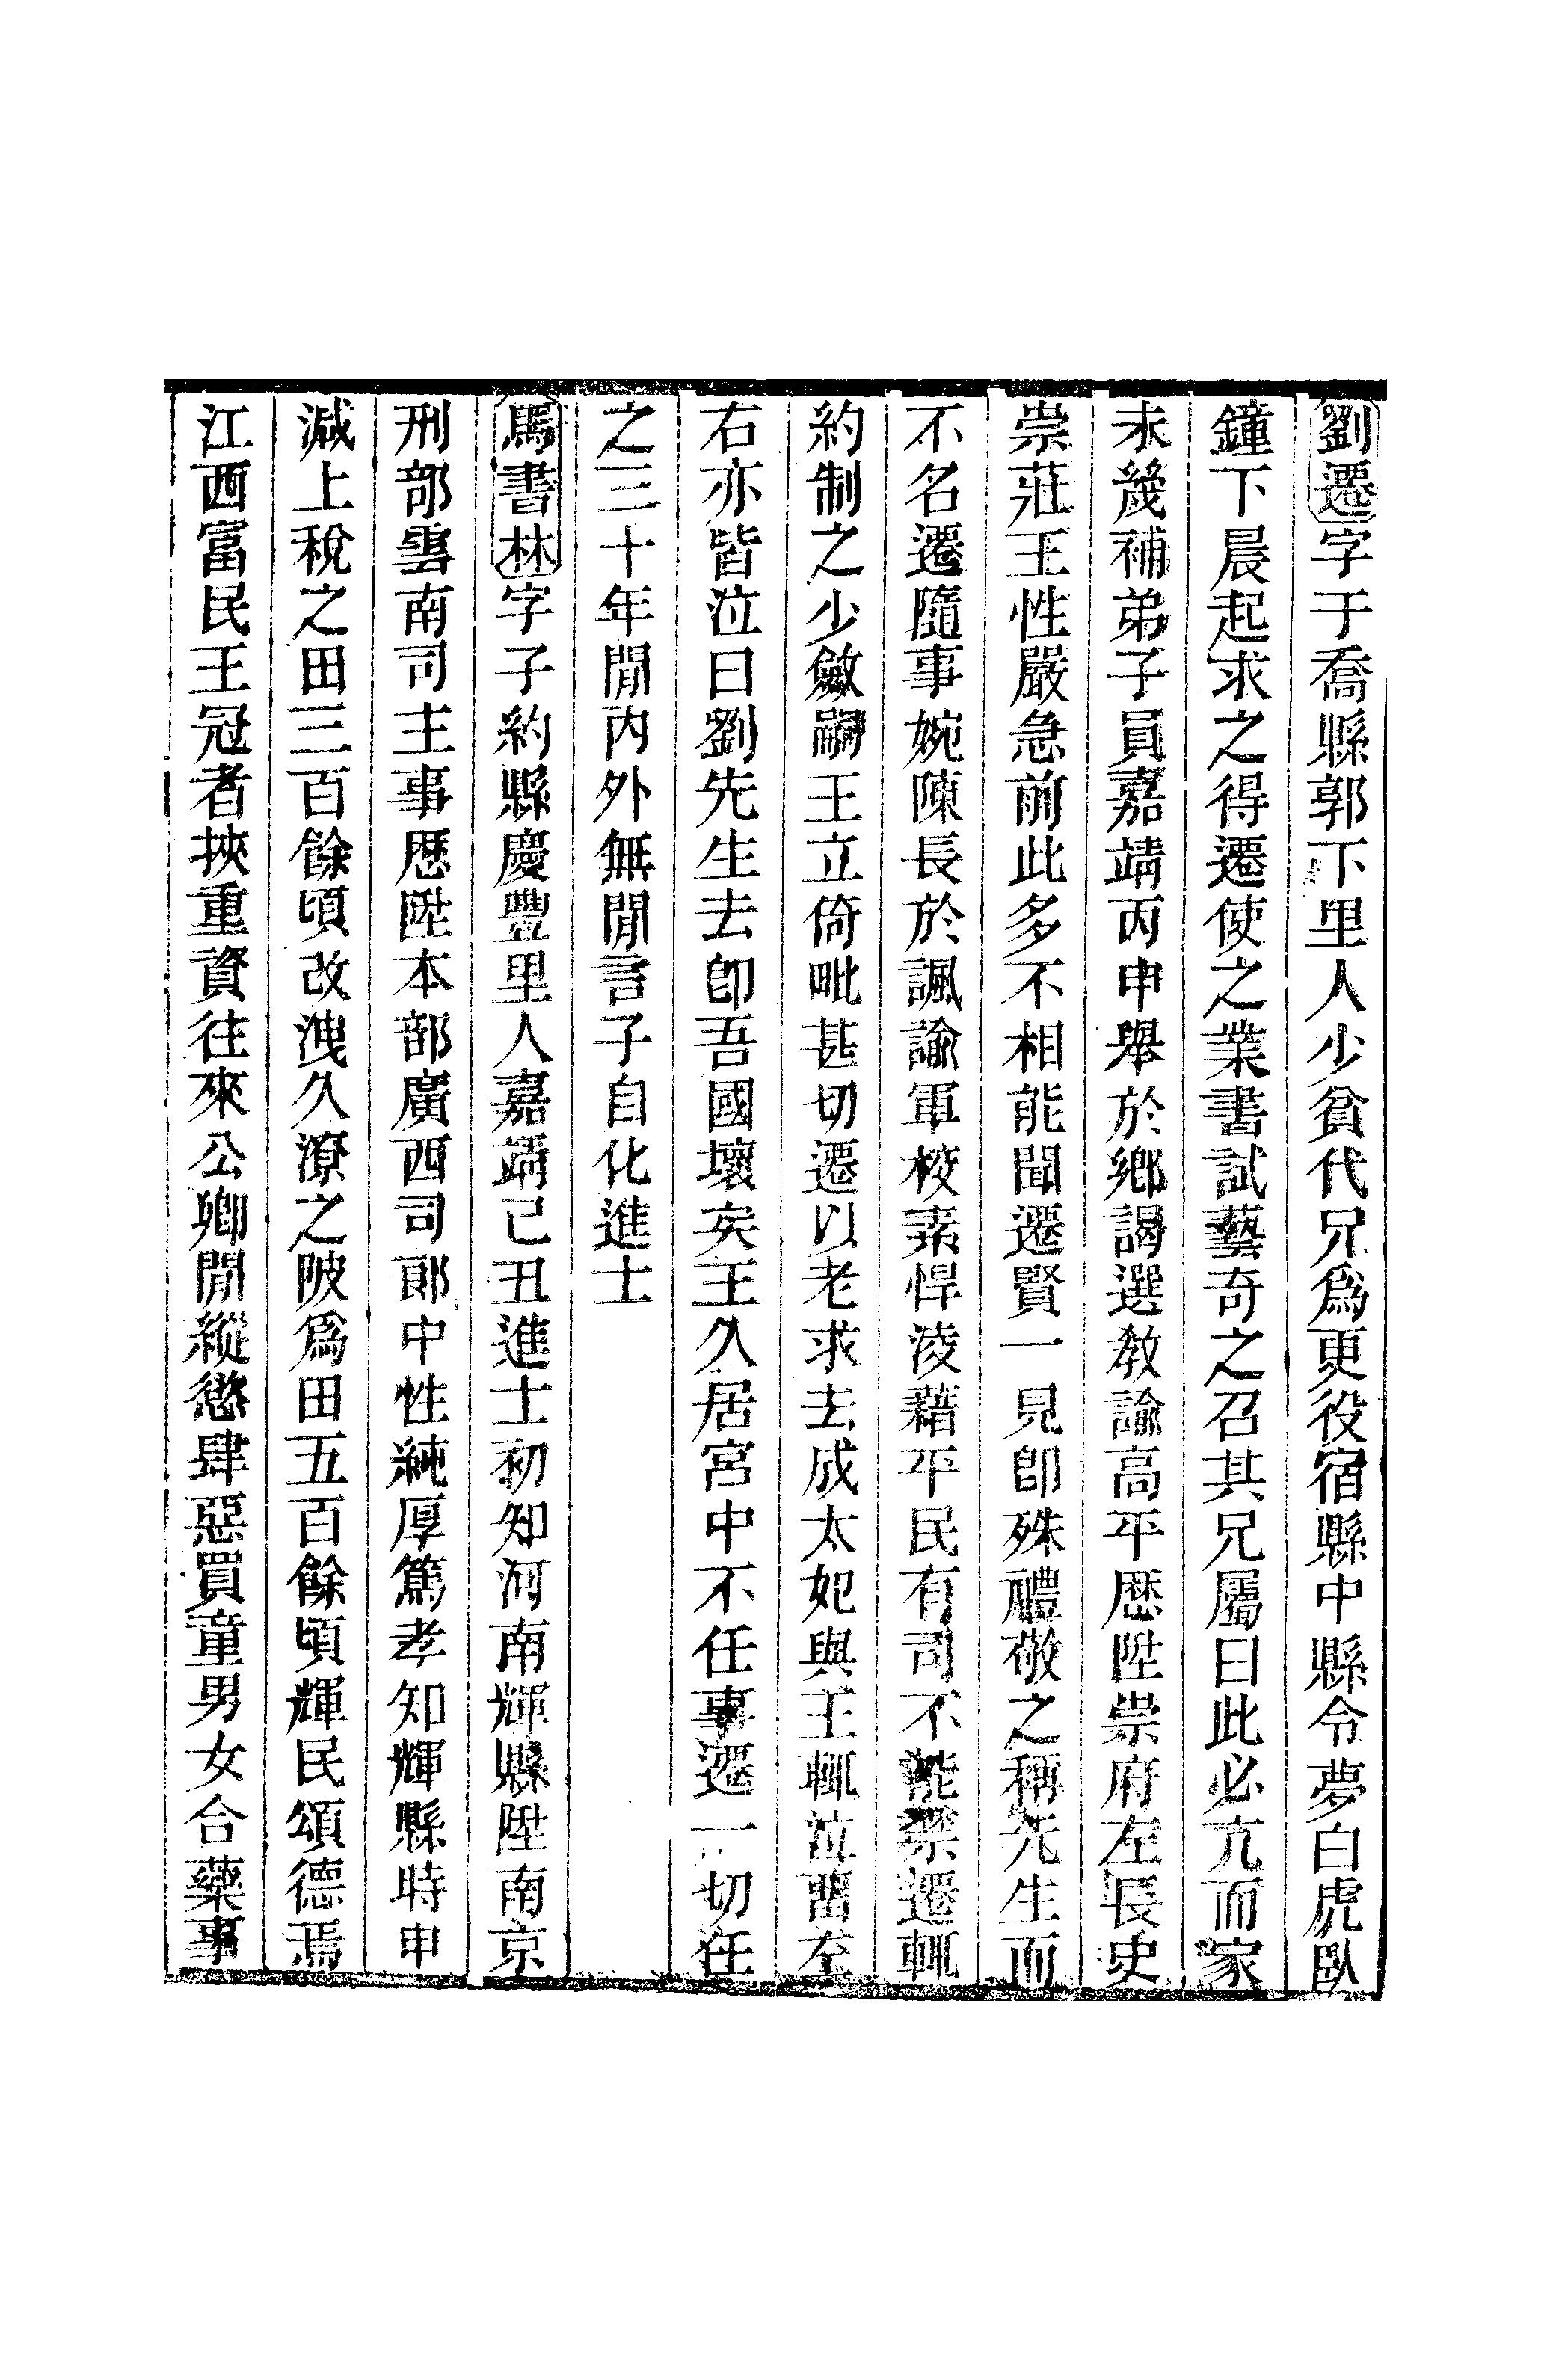 劉遷字于喬縣郭下里人少貧代兄爲更役宿縣中縣令夢白虎臥
鐘下晨起求之得遷使之業書試藝奇之召其兄屬曰此必亢而家
未幾補弟子員嘉靖丙申舉於鄉謁選敎諭高平歷陞崇府左長史
崇莊王性嚴急前此多不相能聞遷賢一見卽殊禮敬之稱先生而
不名遷隨事婉陳長於諷諭軍校素悍淩藉平民有司不能禁遷輒
約制之少斂嗣王立倚毗甚切遷以老求去成太妃與王輒泣畱左
右亦皆泣曰劉先生去卽吾國壞矣王久居宮中不任事遷一切任
之三十年閒內外無閒言子自化進士
馬書林字子約縣慶豐里人嘉靖己丑進士初知河南輝縣陞南京
刑部雲南司主事歷陞本部廣西司郎中性純厚篤孝知輝縣時申
減上稅之田三百餘頃改洩久潦之陂爲田五百餘頃輝民頌德焉
江西富民王冠者挾重資往來公卿閒縱慾肆惡買童男女合藥事